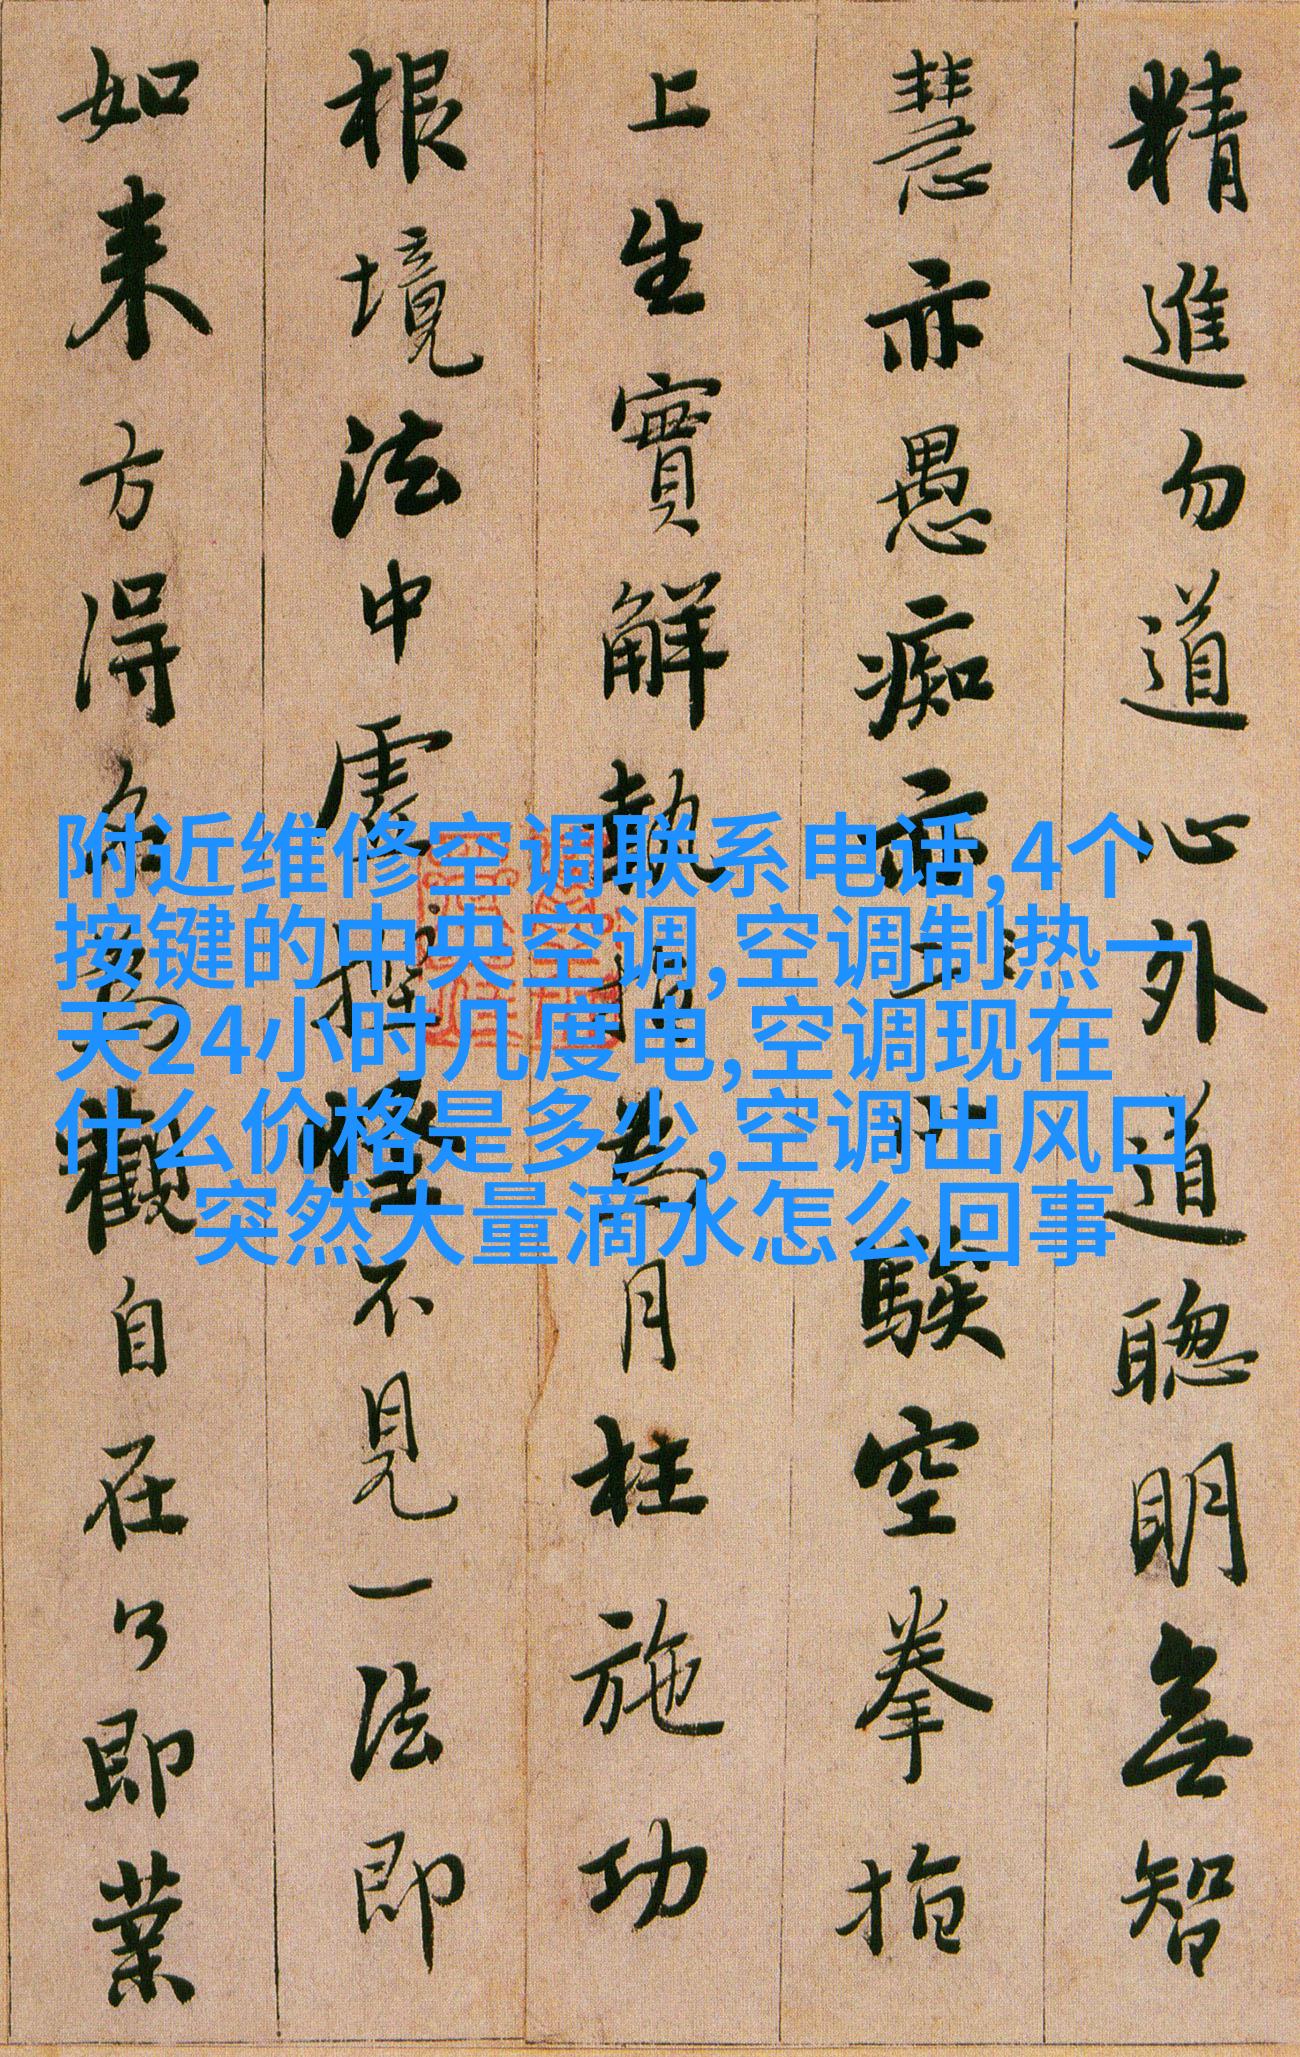 精進勿道心外道聰明無智
慧亦愚痴亦小騃空拳指
上生實解執指為月枉施功
根境法中虛揑怪不見一法即
如来方得名為觀自在了即業
附近维修空调联系电话,4个
按键的中央空调,空调制热一
天24小时几度电,空调现在
什么价格是多少,空调出风口
突然大量滴水怎么回事